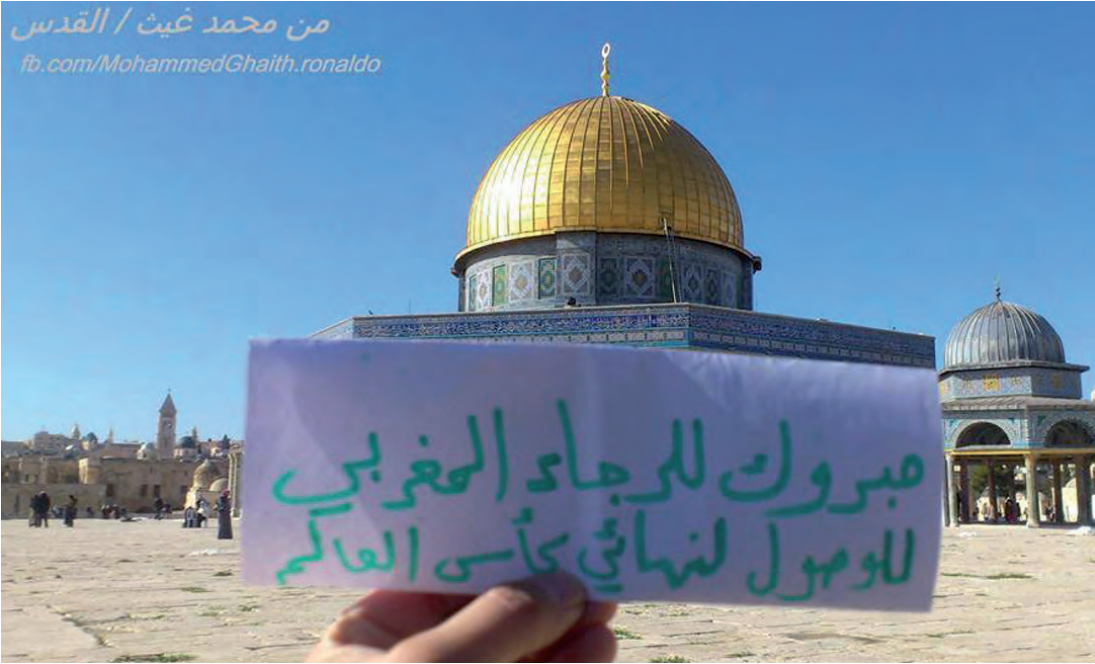 من محمد غيث / القدس
fb.com/MohammedGhaith.ronaldo
مبروك للرجاء المغربي
للوصول لنهائي كأس العالم